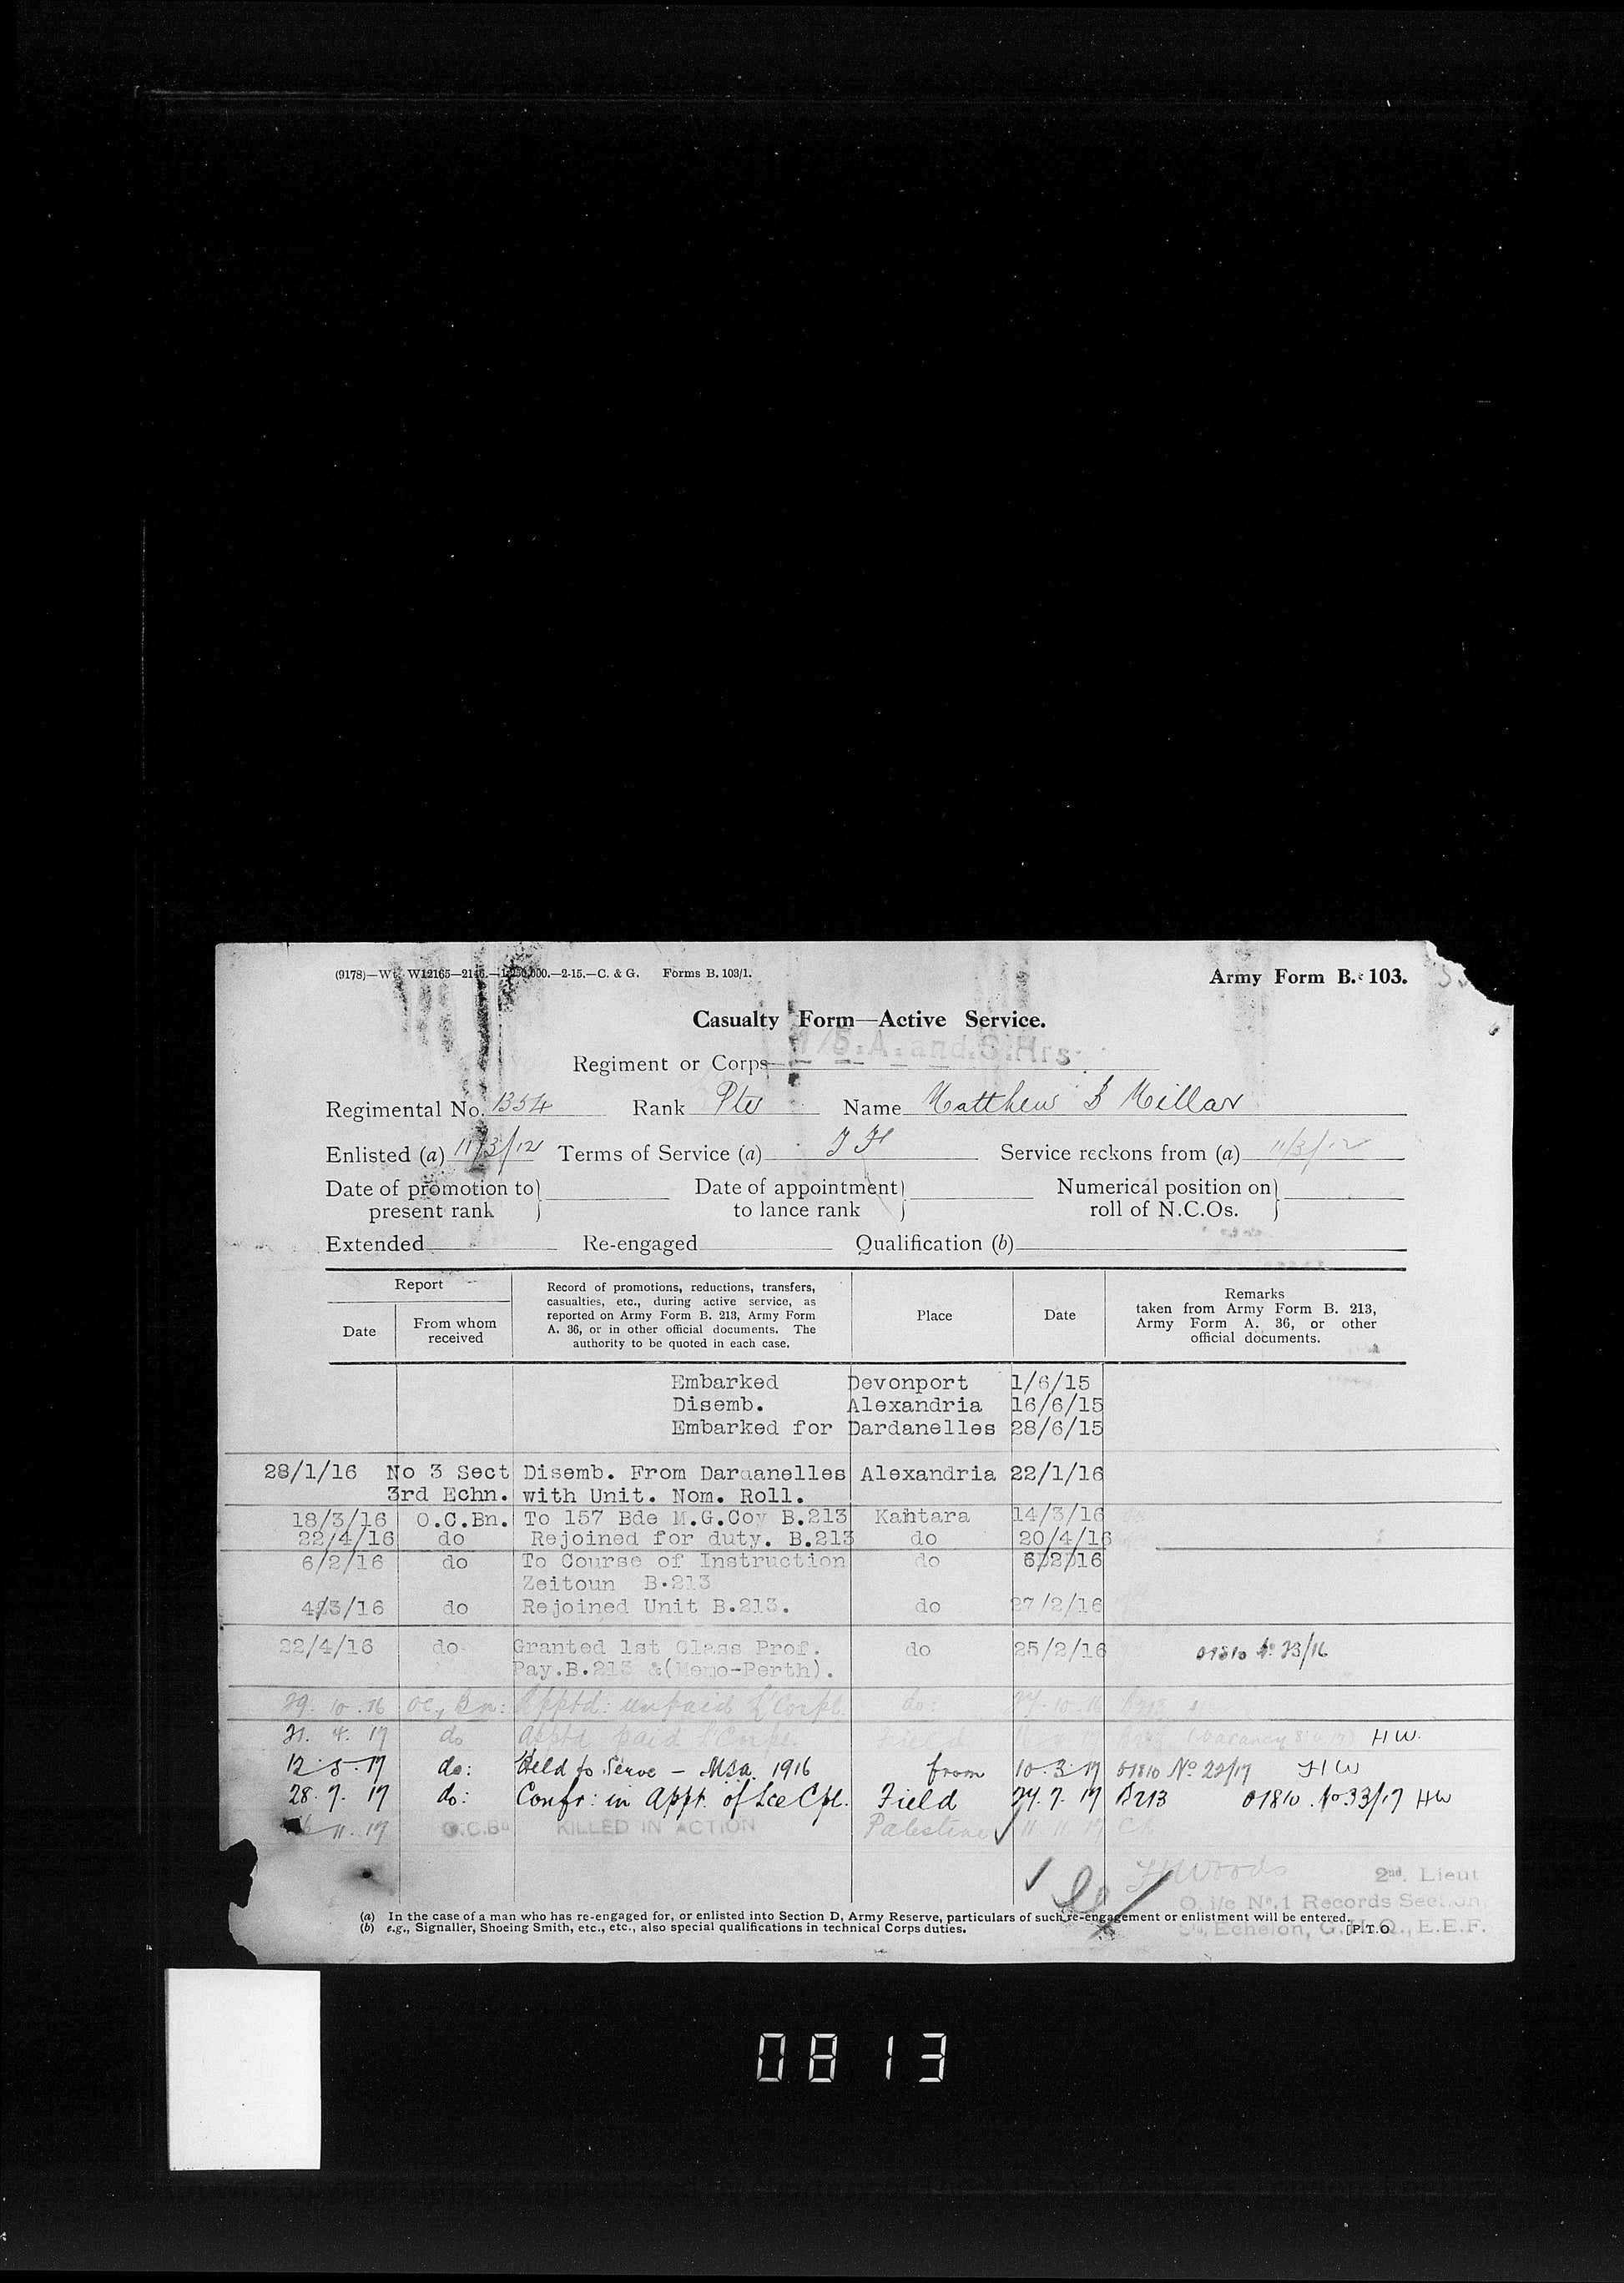 Army Form B. 103.
Casualty Form—Active Service.
Regiment or Corps 1/5.A.and.S.Hrs.
Regimental No. 1354 Rank Pte Name Matthew B Millar
Enlisted (a) 11/3/12 Terms of Service (a) T F Service reckons from (a) 11/3/12
Date of promotion to present rank Date of appointment to lance rank Numerical position on roll of N.C.Os.
Extended Re-engaged Qualification (b)
Report
Date
From whom received
Record of promotions, reductions, transfers,
casualties, etc., during active service, as
reported on Army Form B. 213, Army Form
A. 36, or in other official documents. The
authority to be quoted in each case.
Place
Date
Remarks
taken from Army Form B. 213,
Army Form A. 36, or other
official documents.
Embarked Devonport 1/6/15
Disemb. Alexandria 16/6/15
Embarked for Dardanelles 28/6/15
28/1/16 No 3 Sect Disemb. From Dardanelles Alexandria 22/1/16
3rd Echn. with Unit. Nom. Roll.
18/3/16 O.C.Bn. To 157 Bde M.G.Coy B.213 Kantara 14/3/16
22/4/16 do Rejoined for duty. B.213 do 20/4/16
6/2/16 do To Course of Instruction do 6/2/16
Zeitoun B.213
4/3/16 do Rejoined Unit B.213. do 27/2/16
22/4/16 do Granted 1st Class Prof. do 25/2/16 01810 No 33/16
Pay.B.213 &(Memo-Perth).
29. 10. 16 OC, Bn: Apptd: unpaid L/Corpl. do: 27.10.16 B213
21. 4. 17 do Apptd paid L/Corpl. Field (Vacancy HW.
12.5.17 do: Held to Serve – MSA 1916 from 10.3.17 01810 No 22/17 HW
28. 7. 17 do: Confr: in Appt. of Lce Cpl. Field 24. 7. 17 B213 01810 No 33/17 HW
11. 17 O.C.Bn KILLED IN ACTION Palestine 11 11 17
H Woods 2nd. Lieut
O. i/c No.1 Records Section
3rd, Echelon, G.H.Q., E.E.F.
(a) In the case of a man who has re-engaged for, or enlisted into Section D, Army Reserve, particulars of such re-engagement or enlistment will be entered.
(b) e.g., Signaller, Shoeing Smith, etc., etc., also special qualifications in technical Corps duties. [P.T.O
0813